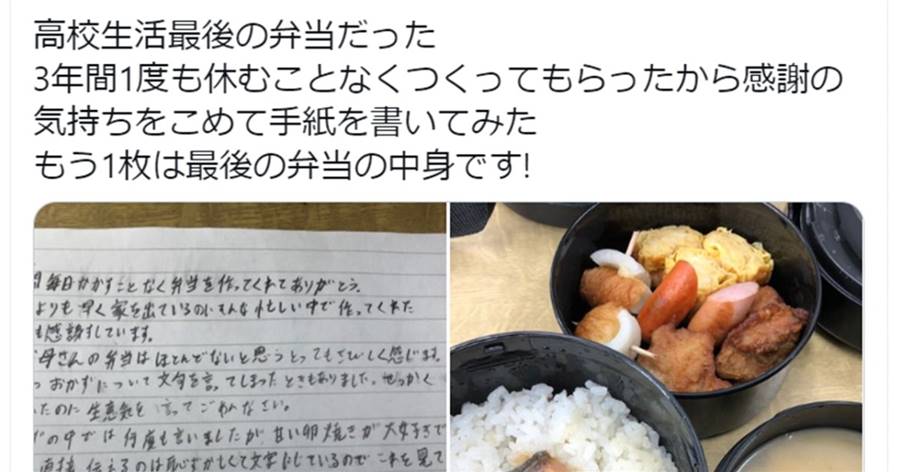 高校生活最後の弁当だった
3年間1度も休むことなくつくってもらったから感謝の
気持ちをこめて手紙を書いてみた
もう1枚は最後の弁当の中身です!
毎日かかすことなく弁当を作ってくれてありがとう。
よりも早く家を出ているのにそんな忙しい中で作ってくれた
も感謝しています。
母さんの弁当はほとんどないと思うとってもさびしく感じます。
おかずについて文句を言ってしまったときもありました。せっかく
たのに生意気を言ってごめんなさい。
の中では何度も言いましたが甘い卵焼きが大好きで
直接伝えるのは恥ずかしくて文字にしているのでこれを見て